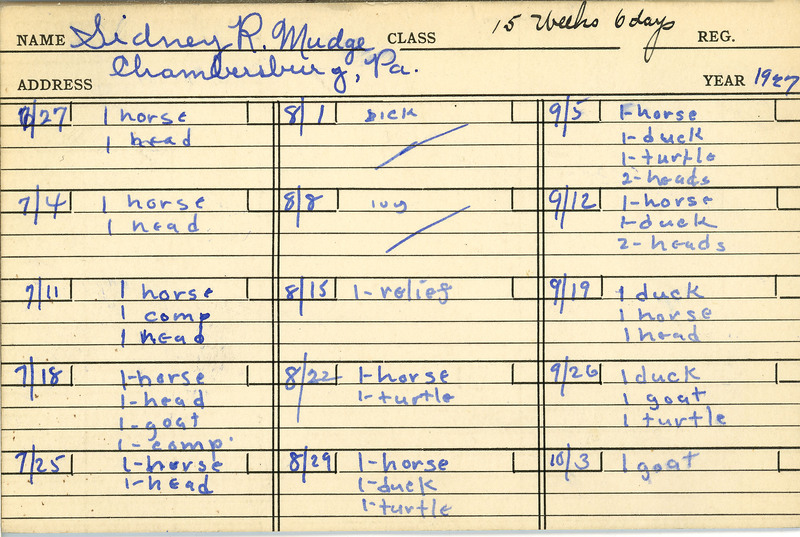 15 Weeks 6 days
NAME Sidney R. Mudge CLASS REG.
ADDRESS Chambersburg, Pa. YEAR 1927
6/27 1 horse
1 head
7/4 1 horse
1 head
7/11 1 horse
1 comp
1 head
7/18 1-horse
1-head
1-goat
1-comp.
7/25 1-horse
1-head
8/1 sick
8/8 ivy
8/15 1-relief
8/22 1-horse
1-turtle
8/29 1-horse
1-duck
1-turtle
9/5 1-horse
1-duck
1-turtle
2-heads
9/12 1-horse
1-duck
2-heads
9/19 1 duck
1 horse
1 head
9/26 1 duck
1 goat
1 turtle
10/3 1 goat